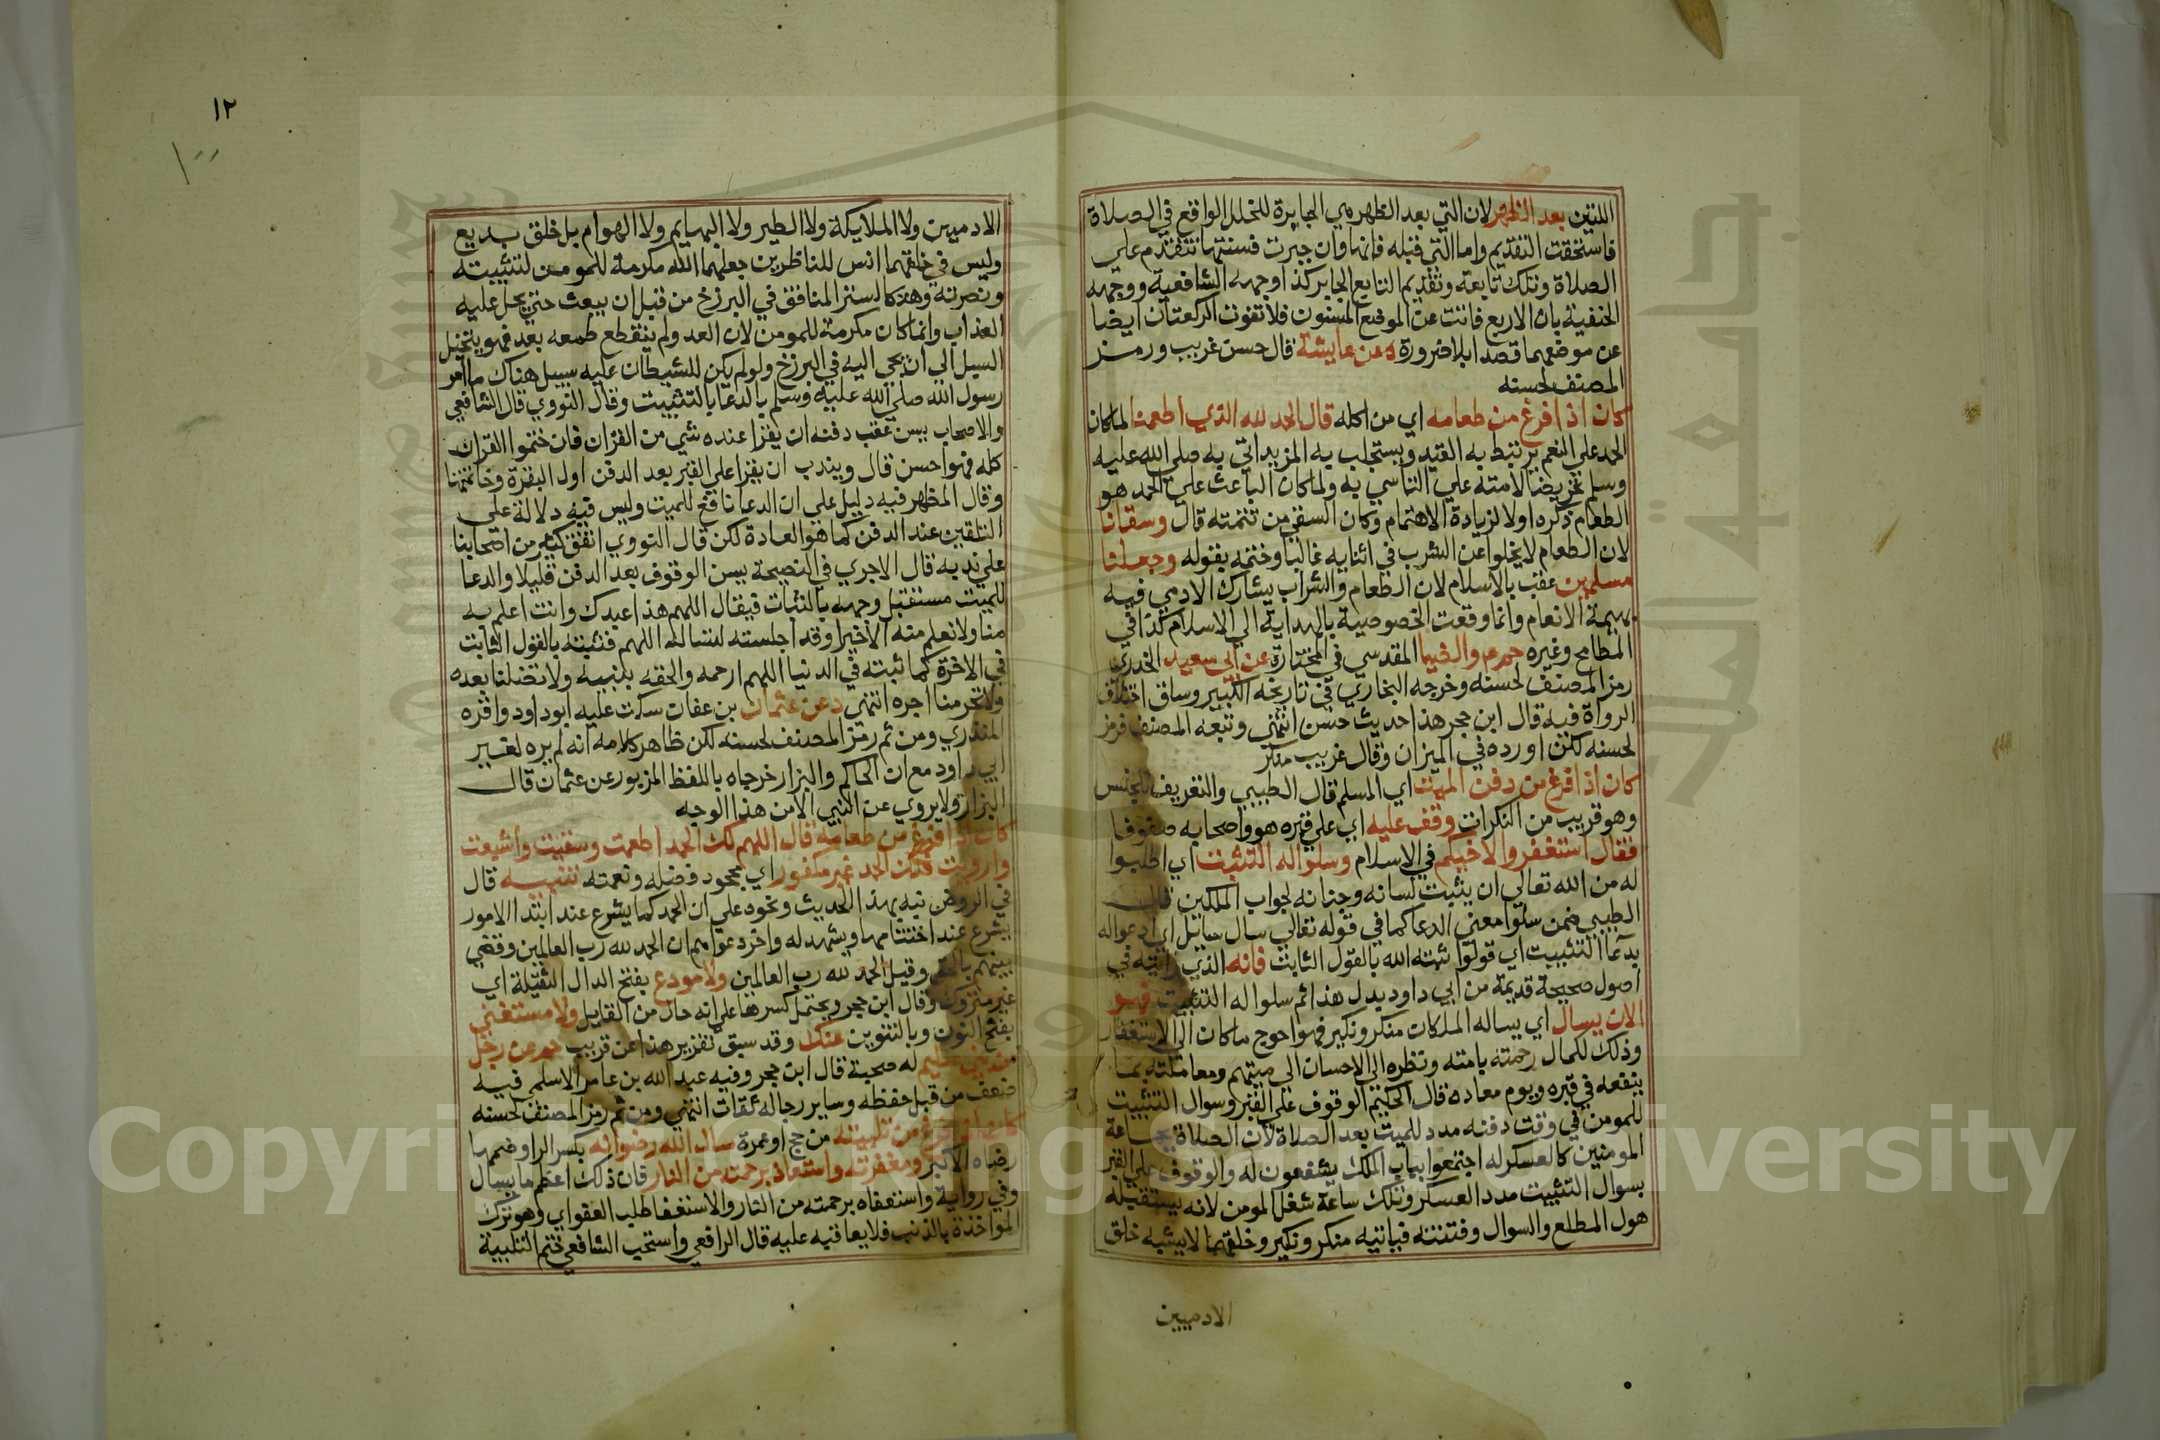 اللتين بعد الظهر لان التي بعد الظهر هي الجابرة للخلل الواقع في الصلاة
فاستحقت التقديم واما التي قبله فانها وان جبرت فسنتها تتقدم علي
الصلاة وتلك تابعة وتقديم التابع الجابر كذا وجهه الشافعية ووجهه
الحنفية بان الاربع فاتت عن الموضع المسنون فلا تفوت الركعتان ايضا
عن موضعهما قصدا بلا ضرورة ه عن عايشة قال حسن غريب ورمز
المصنف لحسنه
كان اذا فرغ من طعامه اي من اكله قال الحمد لله الذي اطعمنا لما كان
الحمد علي النعم يرتبط به القيد ويستجلب به المزيد اتي به صلي الله عليه
وسلم تحريضا لامته علي التاسي به ولما كان الباعث علي الحمد هو
الطعام ذكره اولا لزيادة الاهتمام وكان السقي من تتمته قال وسقانا
لان الطعام لا يخلوا عن الشرب في اثنايه غالبا وختمه بقوله وجعلنا
مسلمين عقب بالاسلام لان الطعام والشراب يشارك الادمي فيه
بهيمة الانعام وانما وقعت الخصوصية بالهداية الي الاسلام كذا في
المطامح وغيره حم ع والضيا المقدسي في المختارة عن ابي سعيد الخدري
رمز المصنف لحسنه وخرجه البخاري في تاريخه الكبير وساق اختلاف
الرواة فيه قال ابن حجر هذا حديث حسن انتهي وتبعه المصنف فرمز
لحسنه لكن اورده في الميزان وقال غريب منكر
كان اذا فرغ من دفن الميت اي المسلم قال الطيبي والتعريف للجنس
وهو قريب من النكرات وقف عليه اي علي قبره هو واصحابه صفوفا
فقال استغفروا لاخيكم في الاسلام وسلوا له التثبيت اي اطلبوا
له من الله تعالي ان يثبت لسانه وجنانه لجواب الملكين قال
الطيبي ضمن سلوا معني الدعا كما في قوله تعالي سال سايل اي ادعوا له
بدعا التثبيت اي قولوا ثبته الله بالقول الثابت فانه الذي رايته في
اصول صحيحة قديمة من ابي داود بدل هذا ثم سلوا له التثبيت فهو
الان يسال اي يساله الملكان منكر ونكير فهو احوج ما كان الي الاستغفار
وذلك لكمال رحمته بامته ونظره الي الاحسان الي ميتهم ومعاملته بما
ينفعه في قبره ويوم معاده قال الحكيم الوقوف علي القبر وسوال التثبيت
للمومن في وقت دفنه مدد للميت بعد الصلاة لان الصلاة بجماعة
المومنين كالعسكر له اجتمعوا بباب الملك يشفعون له والوقوف علي القبر
بسوال التثبيت مدد العسكر وتلك ساعة شغل المومن لانه يستقبله
هول المطلع والسوال وفتنته فياتيه منكر ونكير وخلقهما لا يشبه خلق
الادميين
١٢
الادميين ولا الملايكة ولا الطير ولا البهايم ولا الهوام بل خلق بديع
وليس في خلقهما انس للناظرين جعلهما الله مكرمة للمومن لتثبيته
ونصرته وهتكا لستر المنافق في البرزخ من قبل ان يبعث حتي يحل عليه
العذاب وانما كان مكرمة للمومن لان العدو لم ينقطع طمعه بعد فهو يتخيل
السبيل الي ان يجي اليه في البرزخ ولو لم يكن للشيطان عليه سبيل هناك ما امر
رسول الله صلي الله عليه وسلم بالدعا بالتثبيت وقال النووي قال الشافعي
والاصحاب يسن عقب دفنه ان يقرا عنده شي من القران فان ختموا القران
كله فهو احسن قال ويندب ان يقرا علي القبر بعد الدفن اول البقرة وخاتمتها
وقال المظهر فيه دليل علي ان الدعا نافع للميت وليس فيه دلالة علي
التلقين عند الدفن كما هو العادة لكن قال النووي اتفق كثير من اصحابنا
علي ندبه قال الاجري في النصيحة يسن الوقوف بعد الدفن قليلا والدعا
للميت مستقبل وجهه بالثبات فيقال اللهم هذا عبدك وانت اعلم به
منا ولا نعلم منه الا خيرا وقد اجلسته لتساله اللهم فثبته بالقول الثابت
في الاخرة كما ثبته في الدنيا اللهم ارحمه والحقه بنبيه ولا تضلنا بعده
ولا تحرمنا اجره انتهي د عن عثمان بن عفان سكت عليه ابو داود واقره
المنذري ومن ثم رمز المصنف لحسنه لكن ظاهر كلامه انه لم يره لغير
ابي داود مع ان الحاكم والبزار خرجاه باللفظ المزبور عن عثمان قال
البزار ولا يروي عن النبي الا من هذا الوجه
كان اذا فرغ من طعامه قال اللهم لك الحمد اطعمت وسقيت واشبعت
وارويت فلك الحمد غير مكفور اي مجحود فضله ونعمته تنبيه قال
في الروض نبه بهذا الحديث ونحوه علي ان الحمد كما يشرع عند ابتدا الامور
يشرع عند اختتامها ويشهد له واخر دعواهم ان الحمد لله رب العالمين وقضي
بينهم بالحق وقيل الحمد لله رب العالمين ولا مودع بفتح الدال الثقيلة اي
غير متروك وقال ابن حجر ويحتمل كسرها علي انه حال من القايل ولا مستغني
بفتح النون وبالتنوين عنك وقد سبق تقرير هذا عن قريب حم عن رجل
من بني سليم له صحبة قال ابن حجر وفيه عبد الله بن عامر الاسلمي فيه
ضعف من قبل حفظه وساير رجاله ثقات انتهي ومن ثم رمز المصنف لحسنه
كان اذا فرغ من تلبيته من حج او عمرة سال الله رضوانه بكسر الرا وضمها
رضاه الاكبر ومغفرته واستعاذ برحمته من النار فان ذلك اعظم ما يسال
وفي رواية واستعفاه برحمته من النار والاستعفا طلب العفو اي وهو ترك
المواخذة بالذنب فلا يعاقبه عليه قال الرافعي واستحب الشافعي ختم التلبية
Copyright © King Saud University
جامعة الملك سعود